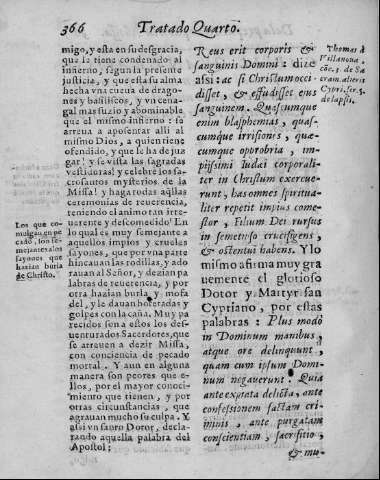 366 Tratado Quarto.
migo, y està en su desgracia,
que le tiene condenado al
infierno, segun la presente
justicia, y que està su alma
hecha vna cueua de drago-
nes y basiliscos, y vn cena-
gal mas suzio y abominable
que el mismo infierno: se
atreua a aposentar alli al
mismo Dios, a quien tiene
ofendido, y que le ha de juz-
gar! y se vista las sagradas
vestiduras! y celebre los sa-
crosantos mysterios de la
Missa! y haga todas aq̃llas
ceremonias de reuerencia,
teniendo el animo tan irre-
uerente y descomedido! En
lo qual es muy semejante a
aquellos impios y crueles
sayones, que por vna parte
hincauan las rodillas, y ado
rauan al Señor, y dezian pa
labras de reuerencia, y por
otra hazian burla y mofa
del, y le dauan bofetadas y
golpes con la caña. Muy pa
recidos son a estos los des-
uenturados Sacerdotes, que
se atreuen a dezir Missa,
con conciencia de pecado
mortal. Y aun en alguna
manera son peores que e-
llos, por el mayor conoci-
miento que tienen, y por
otras circunstancias, que
agrauan mucho su culpa. Y
assi vn santo Dotor, decla-
rando aquella palabra del
Apostol:
Los que co-
mulgan en pe
cado, son se-
mejantes a los
sayones que
hazian burla
de Christo.
Reus erit corporis &
sanguinis Domini: dize
assi: ac si Christum occi-
disset, & effudisset eius
sanguinem. Quascumque
enim blasphemias, quas-
cumque irrisiones, quæ-
cumque opprobria, im-
pijssimi Iudæi corporali-
ter in Christum exercue-
runt, has omnes spiritua-
liter repetit impius comes-
tor, Filium Dei rursus
in semetipso crucifigens,
& ostentui habens. Y lo
mismo afirma muy gra
uemente el glorioso
Dotor y Martyr san
Cypriano, por estas
palabras: Plus modò
in Dominum manibus,
atque ore delinquunt,
quam cum ipsum Domi-
num negauerunt. Quia
ante expiata delicta, ante
confessionem factam cri-
minis, ante purgatam
conscientiam, sacrificio,
& ma-
Thomas à
Villanoua,
cõc. 3. de Sa
cram. altaris
Cypri. ser. 5.
de lapsis.